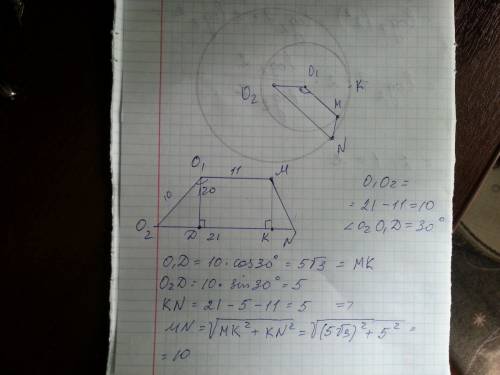 O₁
O₂
K
M
N
O₁
11
M
10
120
O₂
D
21
K
N
O₁O₂ =
= 21 - 11 = 10
∠O₂O₁D = 30°
O₁D = 10 · cos30° = 5√3 = MK
O₂D = 10 · sin30° = 5
KN = 21 - 5 - 11 = 5 =>
MN = √MK² + KN² = √(5√3)² + 5² =
= 10